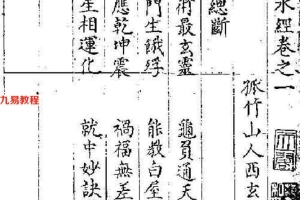 水經卷之一
孤竹山人西玄
總斷
術最玄靈 龜負通天
門生餓殍 能教白屋
應乾坤震 禍福無差
生相運化 就中妙訣
九易教程